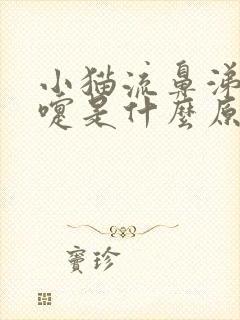 小猫流鼻涕
嚏是什麼原
寶珍